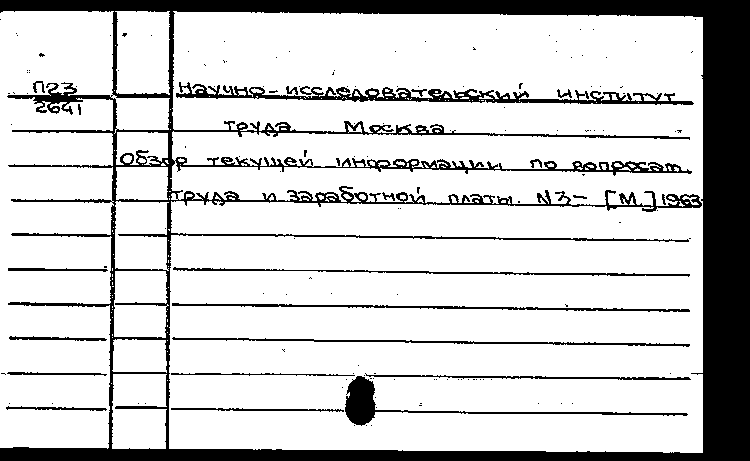 П23
2641
Научно-исследовательский институт
труда. Москва.
Обзор текущей информации по вопросам
труда и заработной платы. N3- [М.] 1963-